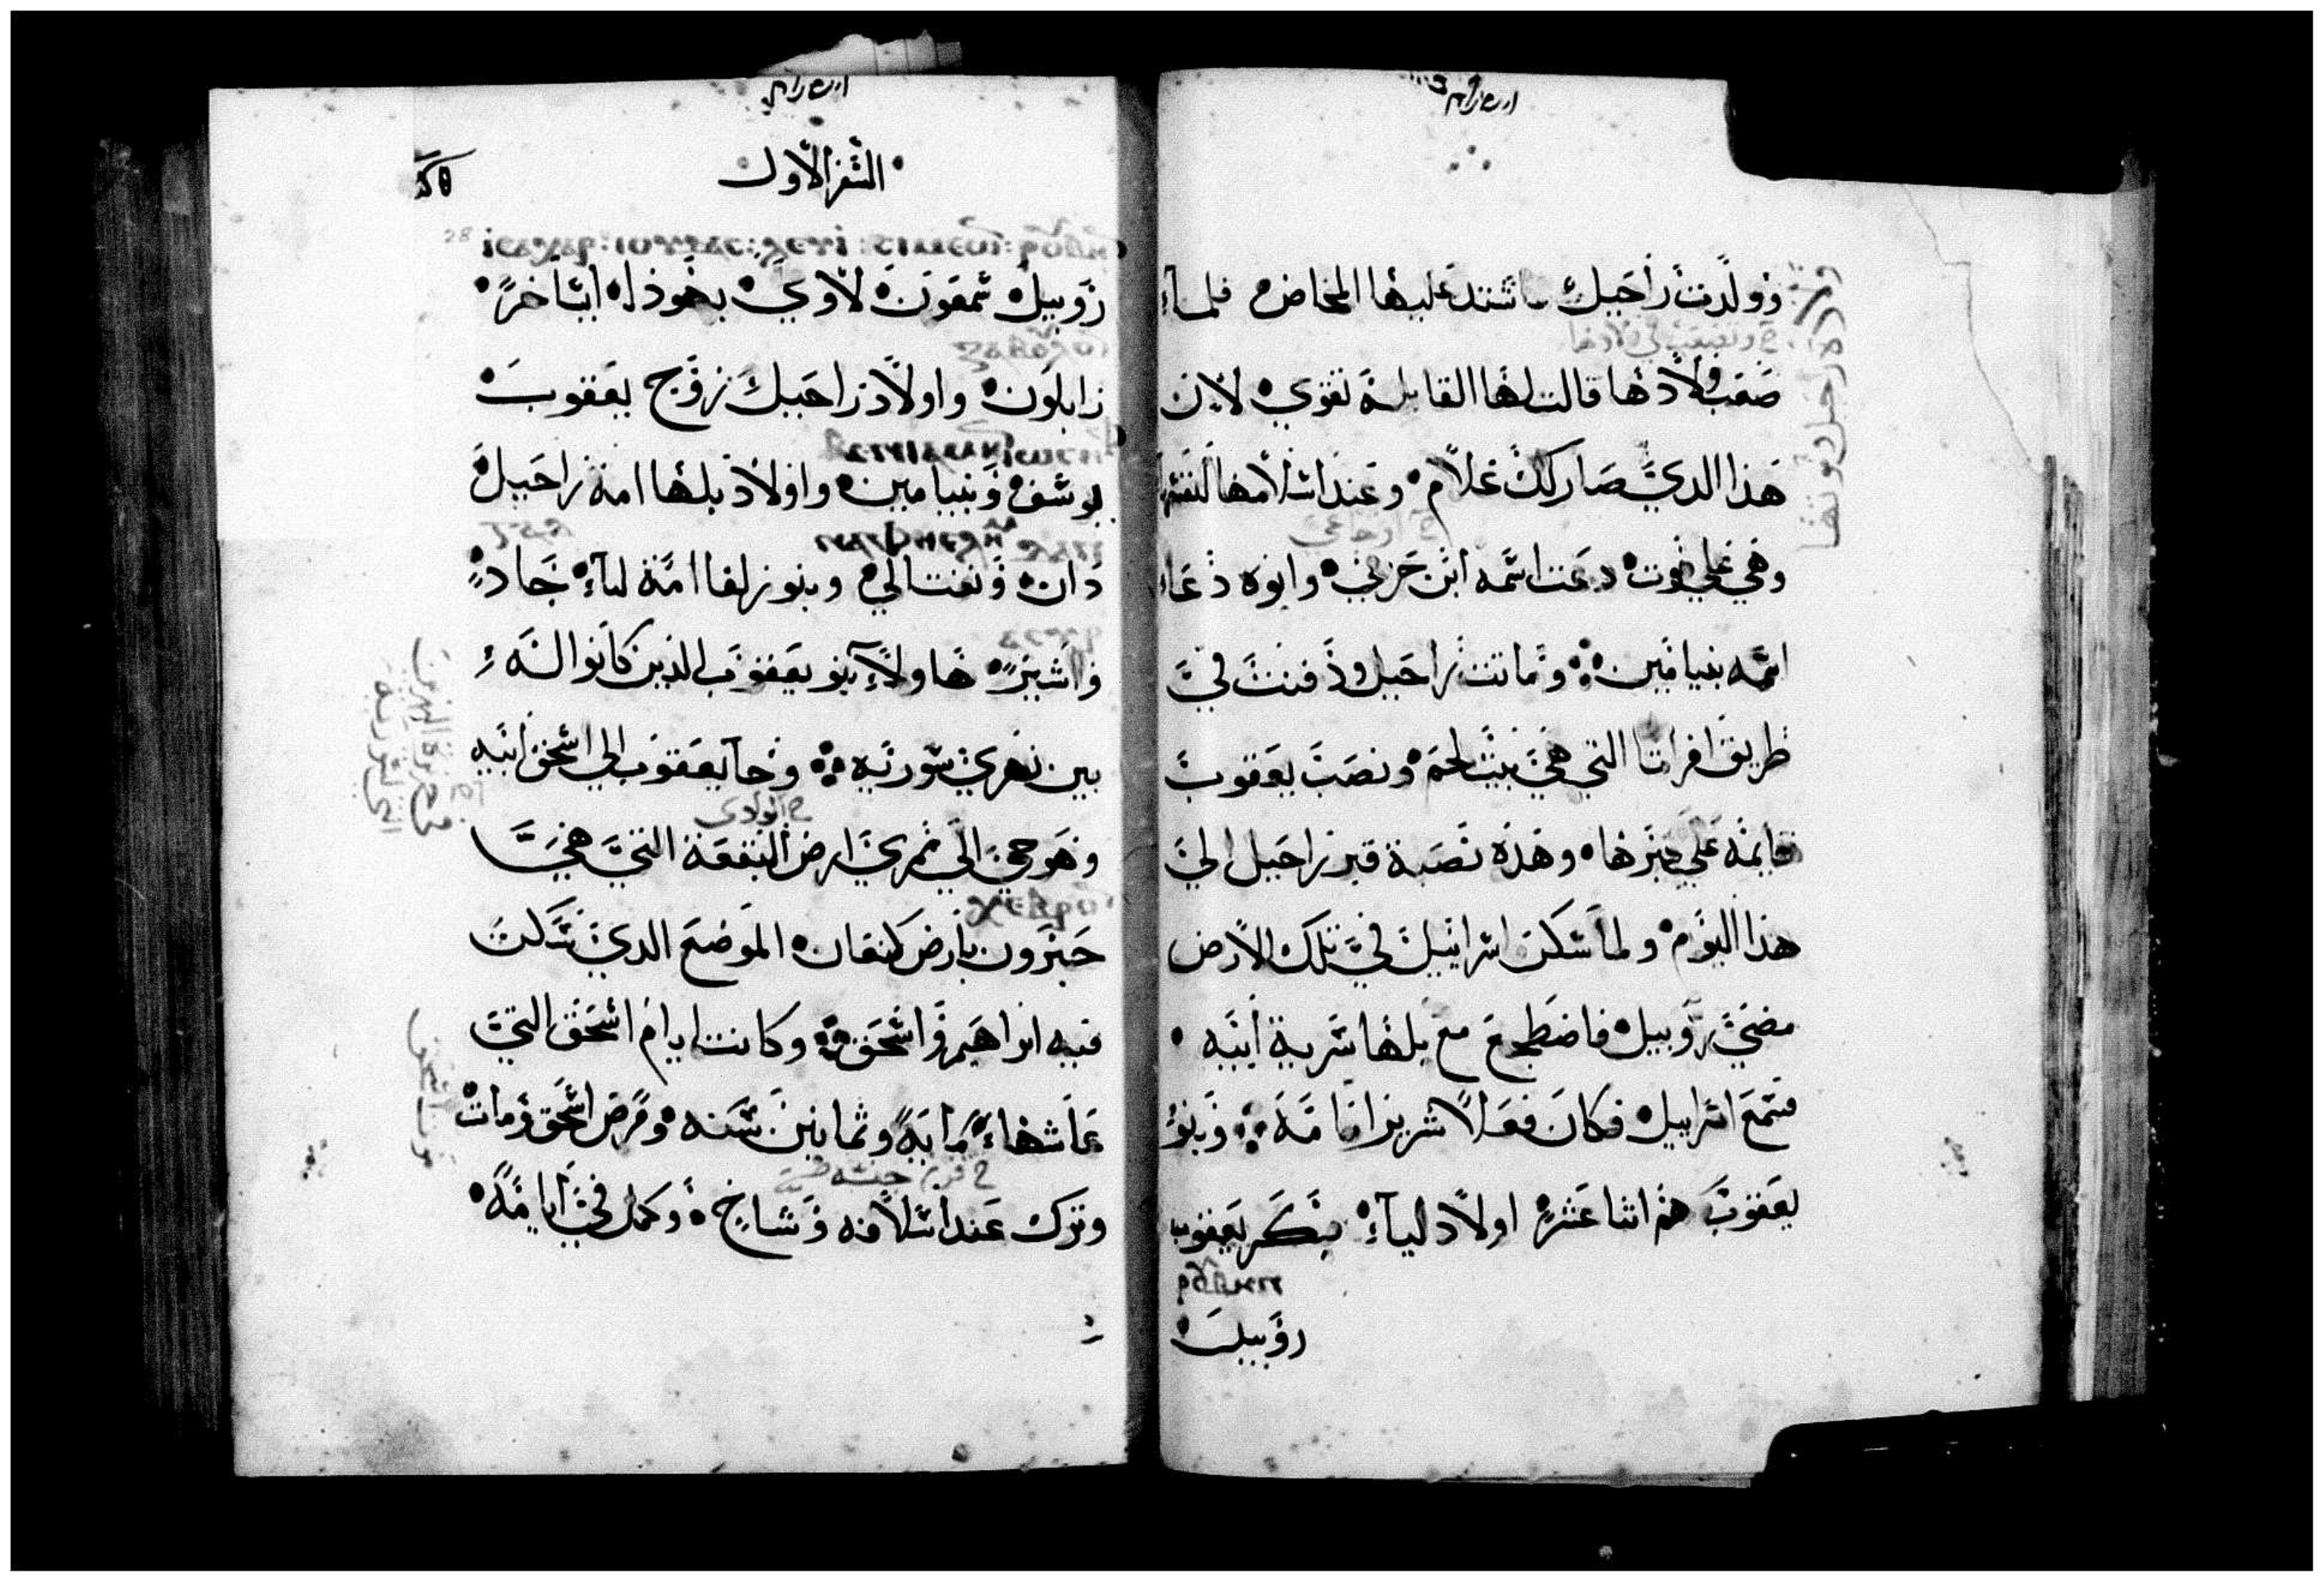 وولدت راحيل فاشتد عليها المخاض فلما
صعب ولادها قالت لها القابلة تقوي لان
هذا الذي صار لك غلام وعند اسلامها لنفسها
وهي علي فوت دعت اسمه ابن حزني وابوه دعا
اسمه بنيامين وماتت راحيل ودفنت في
طريق افراتا التي هي بيت لحم ونصب يعقوب
قايمة علي قبرها وهذه نصبة قبر راحيل الي
هذا اليوم ولما سكن اسراييل في تلك الارض
مضي روبيل فاضطجع مع بلها سرية ابيه
فسمع اسراييل فكان فعلا شريرا امامه وبنو
يعقوب هم اثنا عشر اولاد ليآء بكر يعقوب
روبيل
السفر الاول
روبيل شمعون لاوي يهوذا ايساخر
زابلون واولاد راحيل زوج يعقوب
يوسف وبنيامين واولاد بلها امة راحيل
دان ونفتالي وبنو زلفا امة ليآء جاد
واشير هاولآء بنو يعقوب الذين كانوا له
بين نهري سورية وجآ يعقوب الي اسحق ابيه
وهو حي الي ممري ارض البقعة التي هي
حبرون بارض كنعان الموضع الذي سكن
فيه ابراهيم واسحق وكانت ايام اسحق التي
عاشها ماية وثمانين سنه ومرض اسحق ومات
وترك عند اسلافه وشاخ وكمل في ايامه